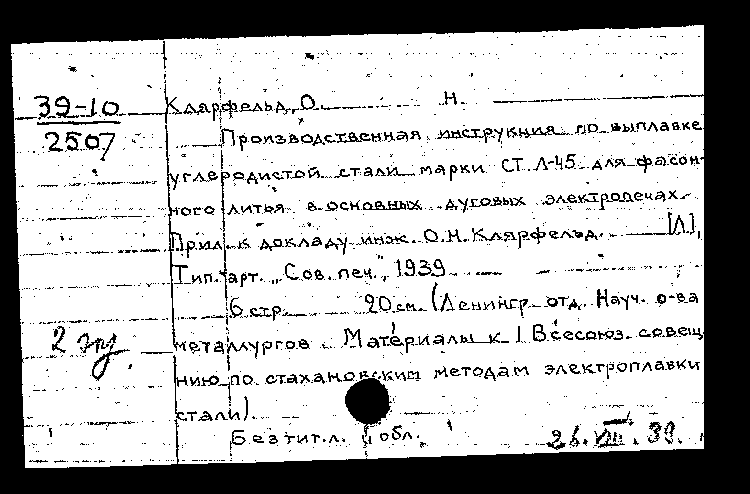 39-10
2507
Клярфельд, О. Н.
Производственная инструкция по выплавке
углеродистой стали марки СТ. Л-45 для фасон-
ного литья в основных дуговых электропечах.
Прил. к докладу инж. О.Н. Клярфельд. [Л],
Тип. арт. „Сов. печ.", 1939
6 стр. 20 см. (Ленингр. отд. Науч. о-ва
металлургов. Материалы к I Всесоюз. совещ.
2 экз.
нию по стахановским методам электроплавки
стали).
Без тит. л. и обл.
26. VIII. 39.